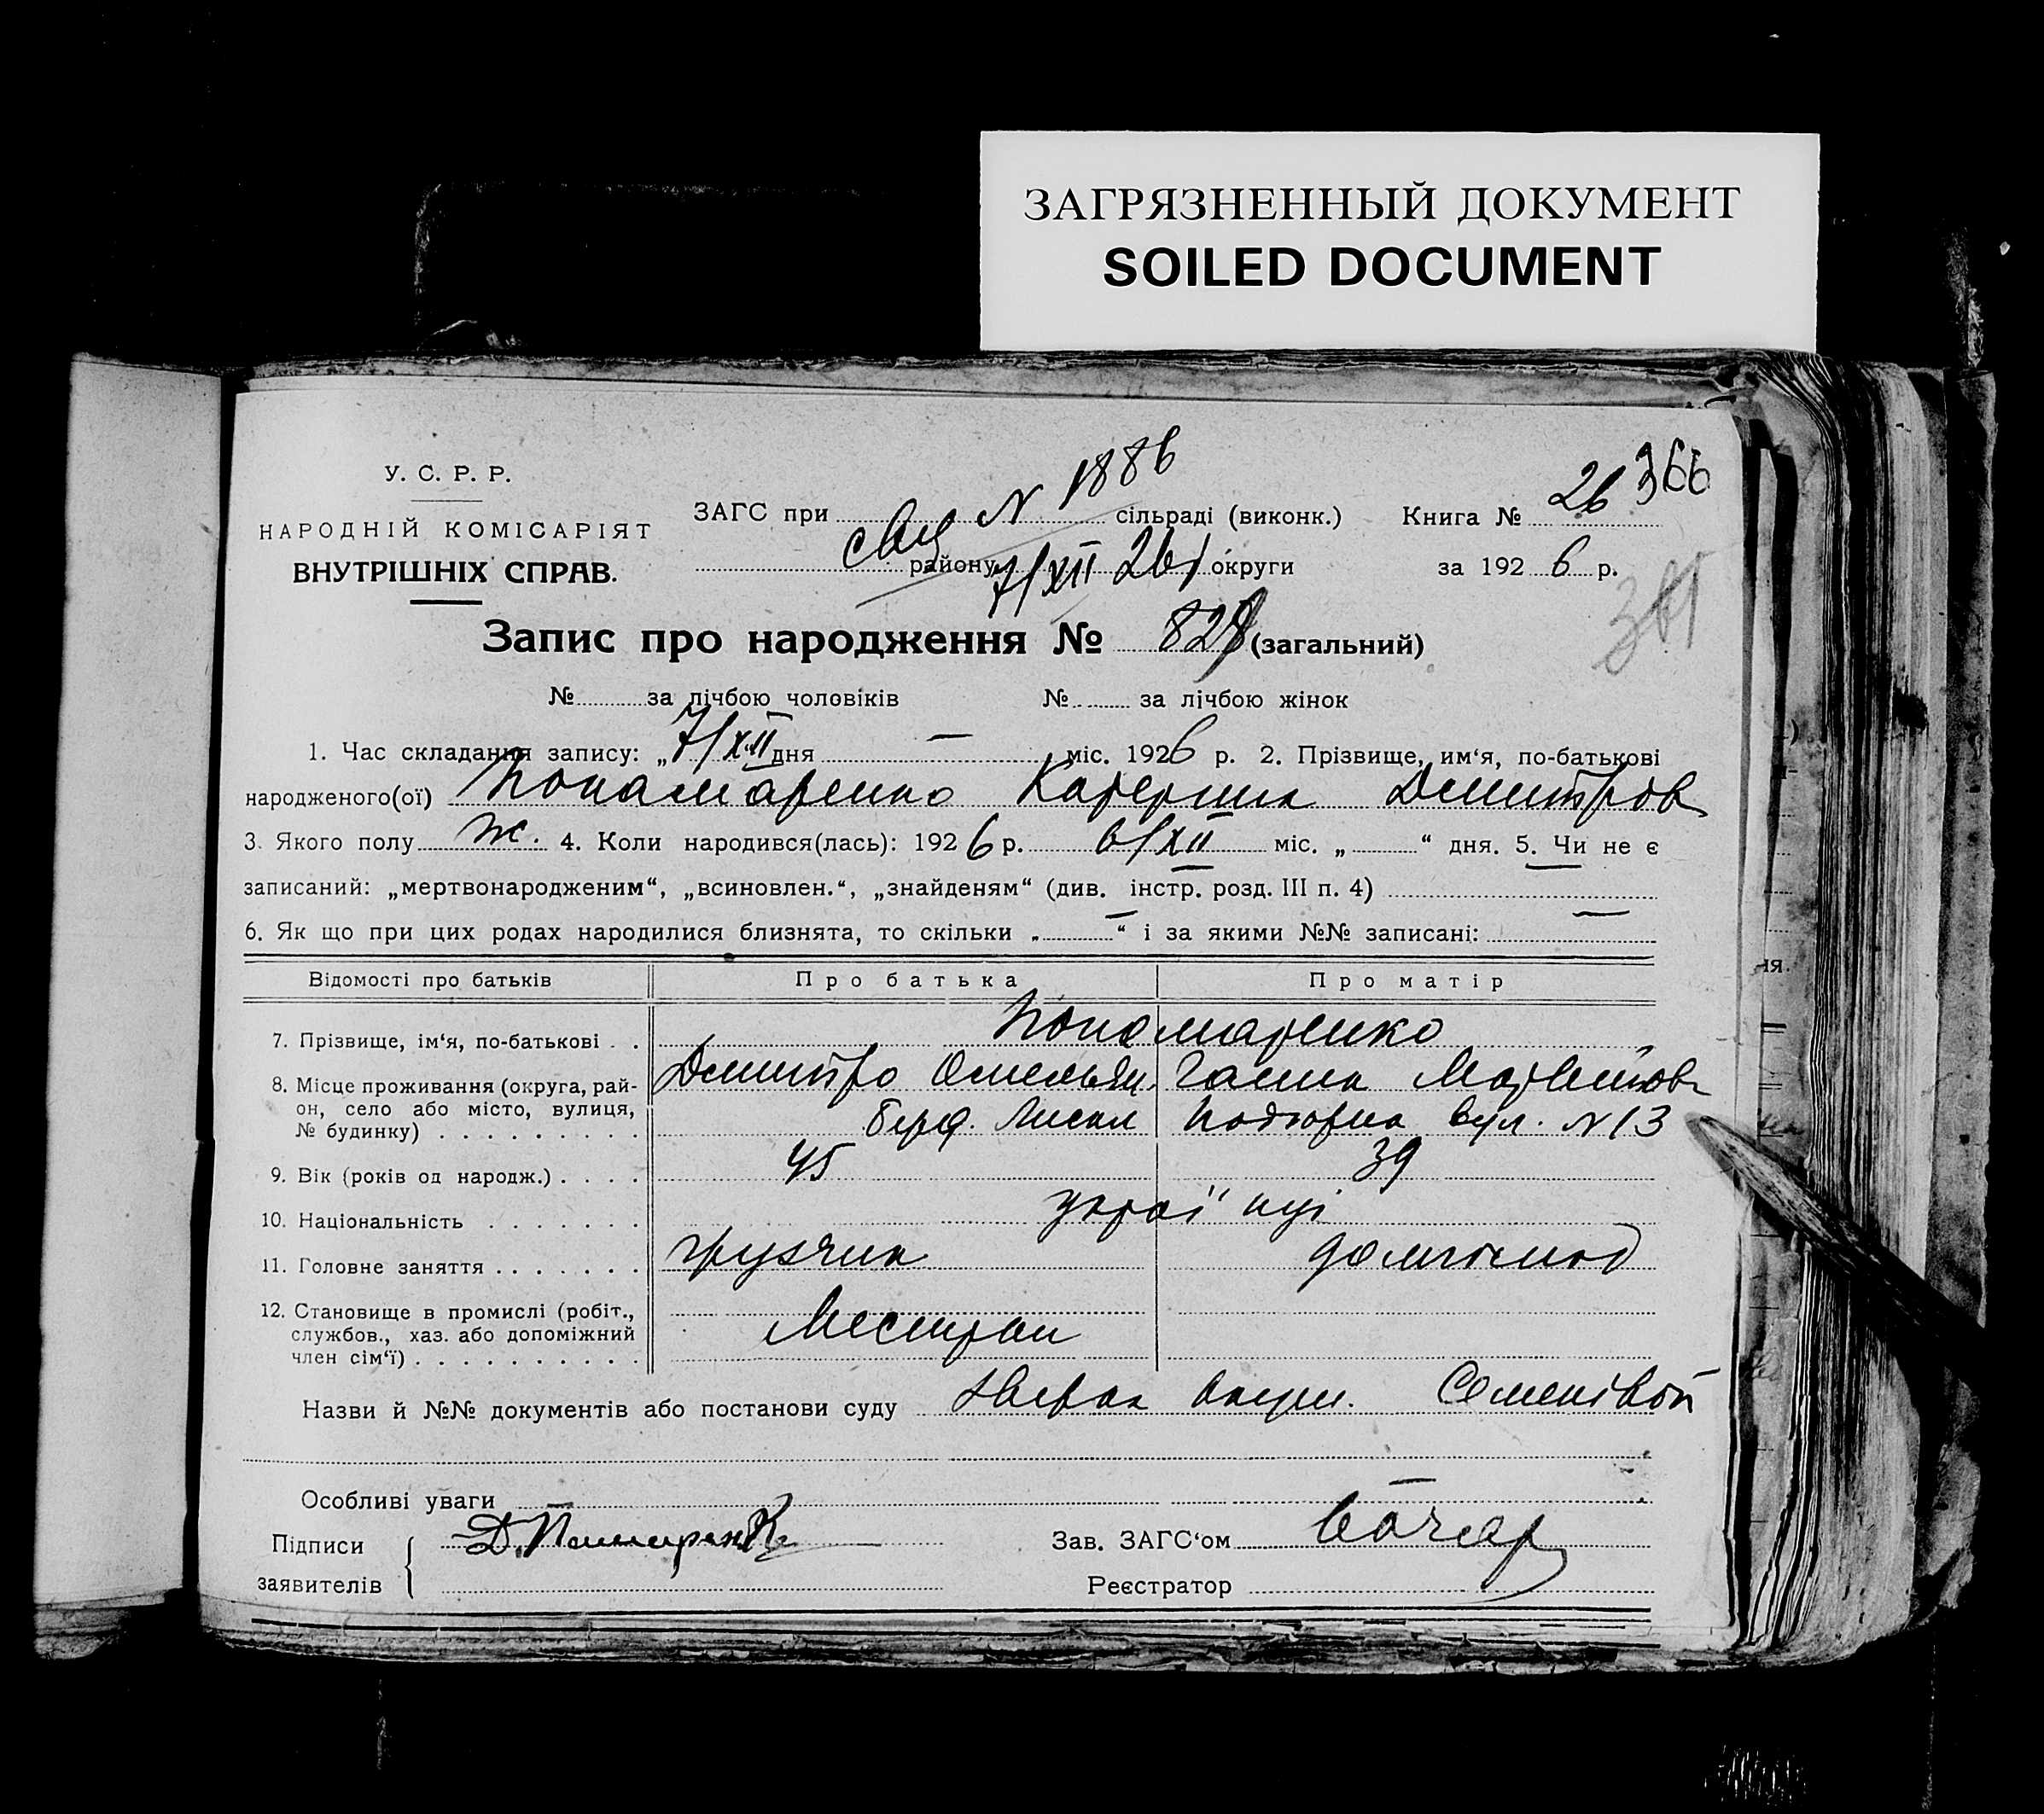 ЗАГРЯЗНЕННЫЙ ДОКУМЕНТ
SOILED DOCUMENT
У. С. Р. Р.
НАРОДНІЙ КОМІСАРІЯТ
ВНУТРІШНІХ СПРАВ.
ЗАГС при N 1886 сільраді (виконк.)
Книга № 26 366
району 7/XII 26 округи
за 1926 р.
Запис про народження № 828 (загальний)
№ за лічбою чоловіків № за лічбою жінок
1. Час складання запису: „7/XII дня — міс. 1926 р. 2. Прізвище, им‘я, по-батькові
народженого(ої) Понамаренко Катерина Дмитров
3. Якого полу ж. 4. Коли народився(лась): 1926 р. 6/XII міс. „ “ дня. 5. Чи не є
записаний: „мертвонародженим“, „всиновлен.“, „знайденям“ (див. інстр. розд. III п. 4) —
6. Як що при цих родах народилися близнята, то скільки „—“ і за якими №№ записані: —
Відомості про батьків Про батька Про матір
7. Прізвище, ім‘я, по-батькові . . Понамаренко
Дмитро Омельян. Ганна Матвіїов
8. Місце проживання (округа, рай-
он, село або місто, вулиця,
№ будинку) вул. N 13
9. Вік (років од народж.) . . . . 45 39
10. Національність українці
11. Головне заняття грузчик домгоспод
12. Становище в промислі (робіт.,
службов., хаз. або допоміжний
член сім‘ї)
Назви й №№ документів або постанови суду Семенівой
Особливі уваги —
Підписи
заявителів
Зав. ЗАГС‘ом
Реєстратор